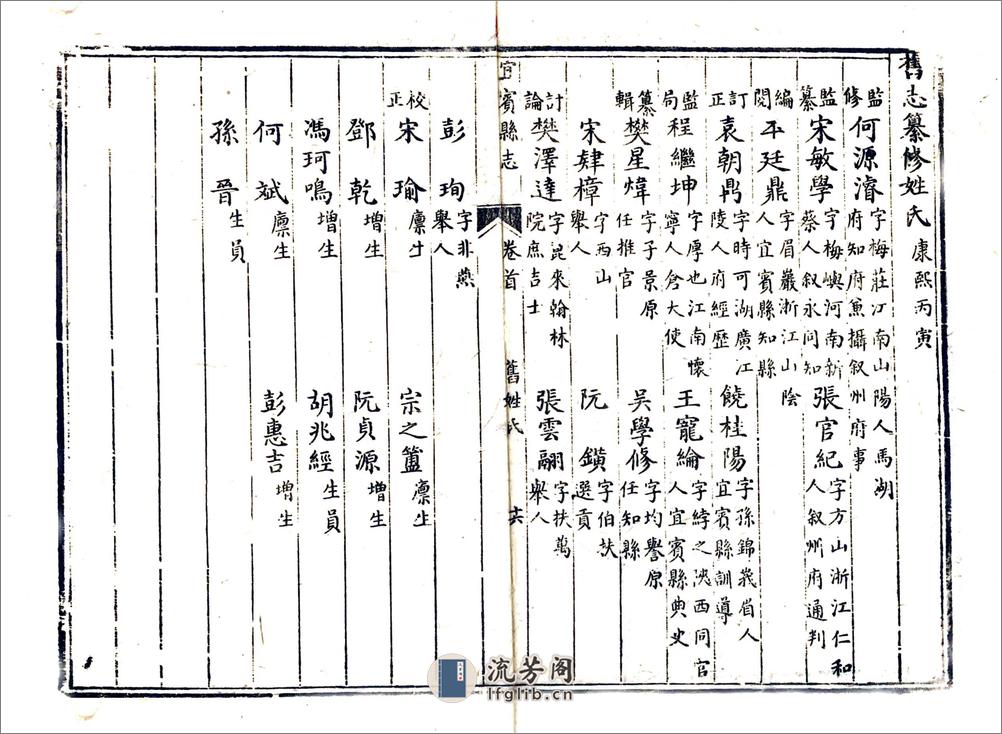 舊志纂修姓氏 康熙丙寅
監修 何源濬 字梅莊江南山陽人馬湖府知府兼攝叙州府事
監纂 宋敏學 字梅嶼河南新蔡人叙永同知 張官紀 字方山浙江仁和人叙州府通判
編閱 平廷鼎 字眉巖浙江山陰人宜賓縣知縣
訂正 袁朝鼎 字時可湖廣江陵人府經歷 饒桂陽 字孫錦莪眉人宜賓縣訓導
監局 程繼坤 字厚也江南懷寧人倉大使 王寵綸 字綍之陝西同官人宜賓縣典史
纂輯 樊星煒 字子景原任推官 吳學修 字均譽原任知縣
宋肆樟 字西山舉人 阮鐄 字伯扶選貢
討論 樊澤達 字昆來翰林院庶吉士 張雲翮 字扶萬舉人
宜賓縣志 卷首 舊姓氏 十六
彭珣 字非燕舉人
校正 宋瑜 廪生 宗之簠 廪生
鄧乾 增生 阮貞源 增生
馮珂鳴 增生 胡兆經 生員
何斌 廪生 彭惠吉 增生
孫晉 生員
流芳阁
lfglib.cn